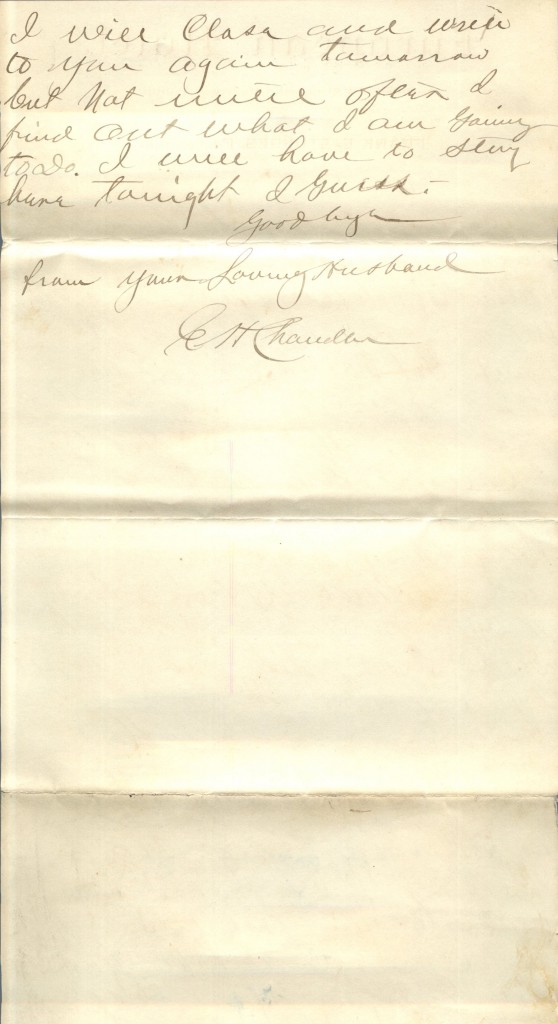 I will Close and write
to you again tomorrow
but Not untill after I
find out what I am going
to do. I will have to stay
here tonight I Guess.
Good bye
from your Loving Husband
E H Chandler